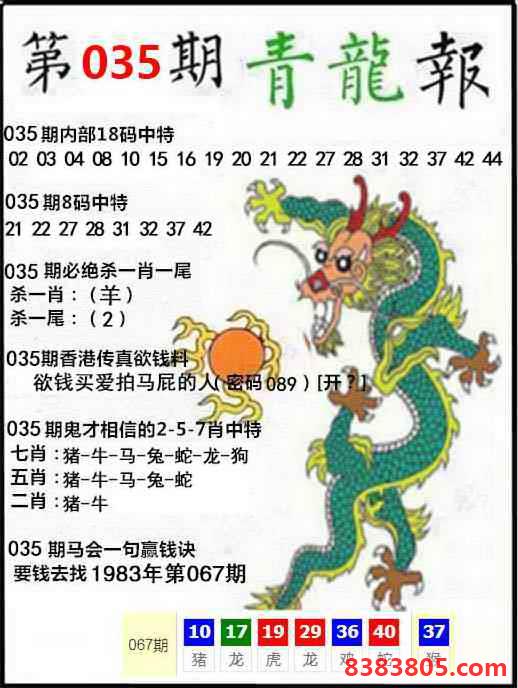 第035期青龍報
035期内部18码中特
02 03 04 08 10 15 16 19 20 21 22 27 28 31 32 37 42 44
035期8码中特
21 22 27 28 31 32 37 42
035期必绝杀一肖一尾
杀一肖：（羊）
杀一尾：（2）
035期香港传真欲钱料
欲钱买爱拍马屁的人(密码089)[开？]
035期鬼才相信的2-5-7肖中特
七肖：猪-牛-马-兔-蛇-龙-狗
五肖：猪-牛-马-兔-蛇
二肖：猪-牛
035期马会一句赢钱诀
要钱去找1983年第067期
067期 10 17 19 29 36 40 37
猪 龙 虎 龙 鸡 蛇 猴
8383805.com